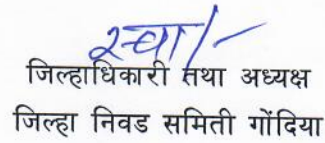 स्वा/-
जिल्हाधिकारी तथा अध्यक्ष
जिल्हा निवड समिती गोंदिया